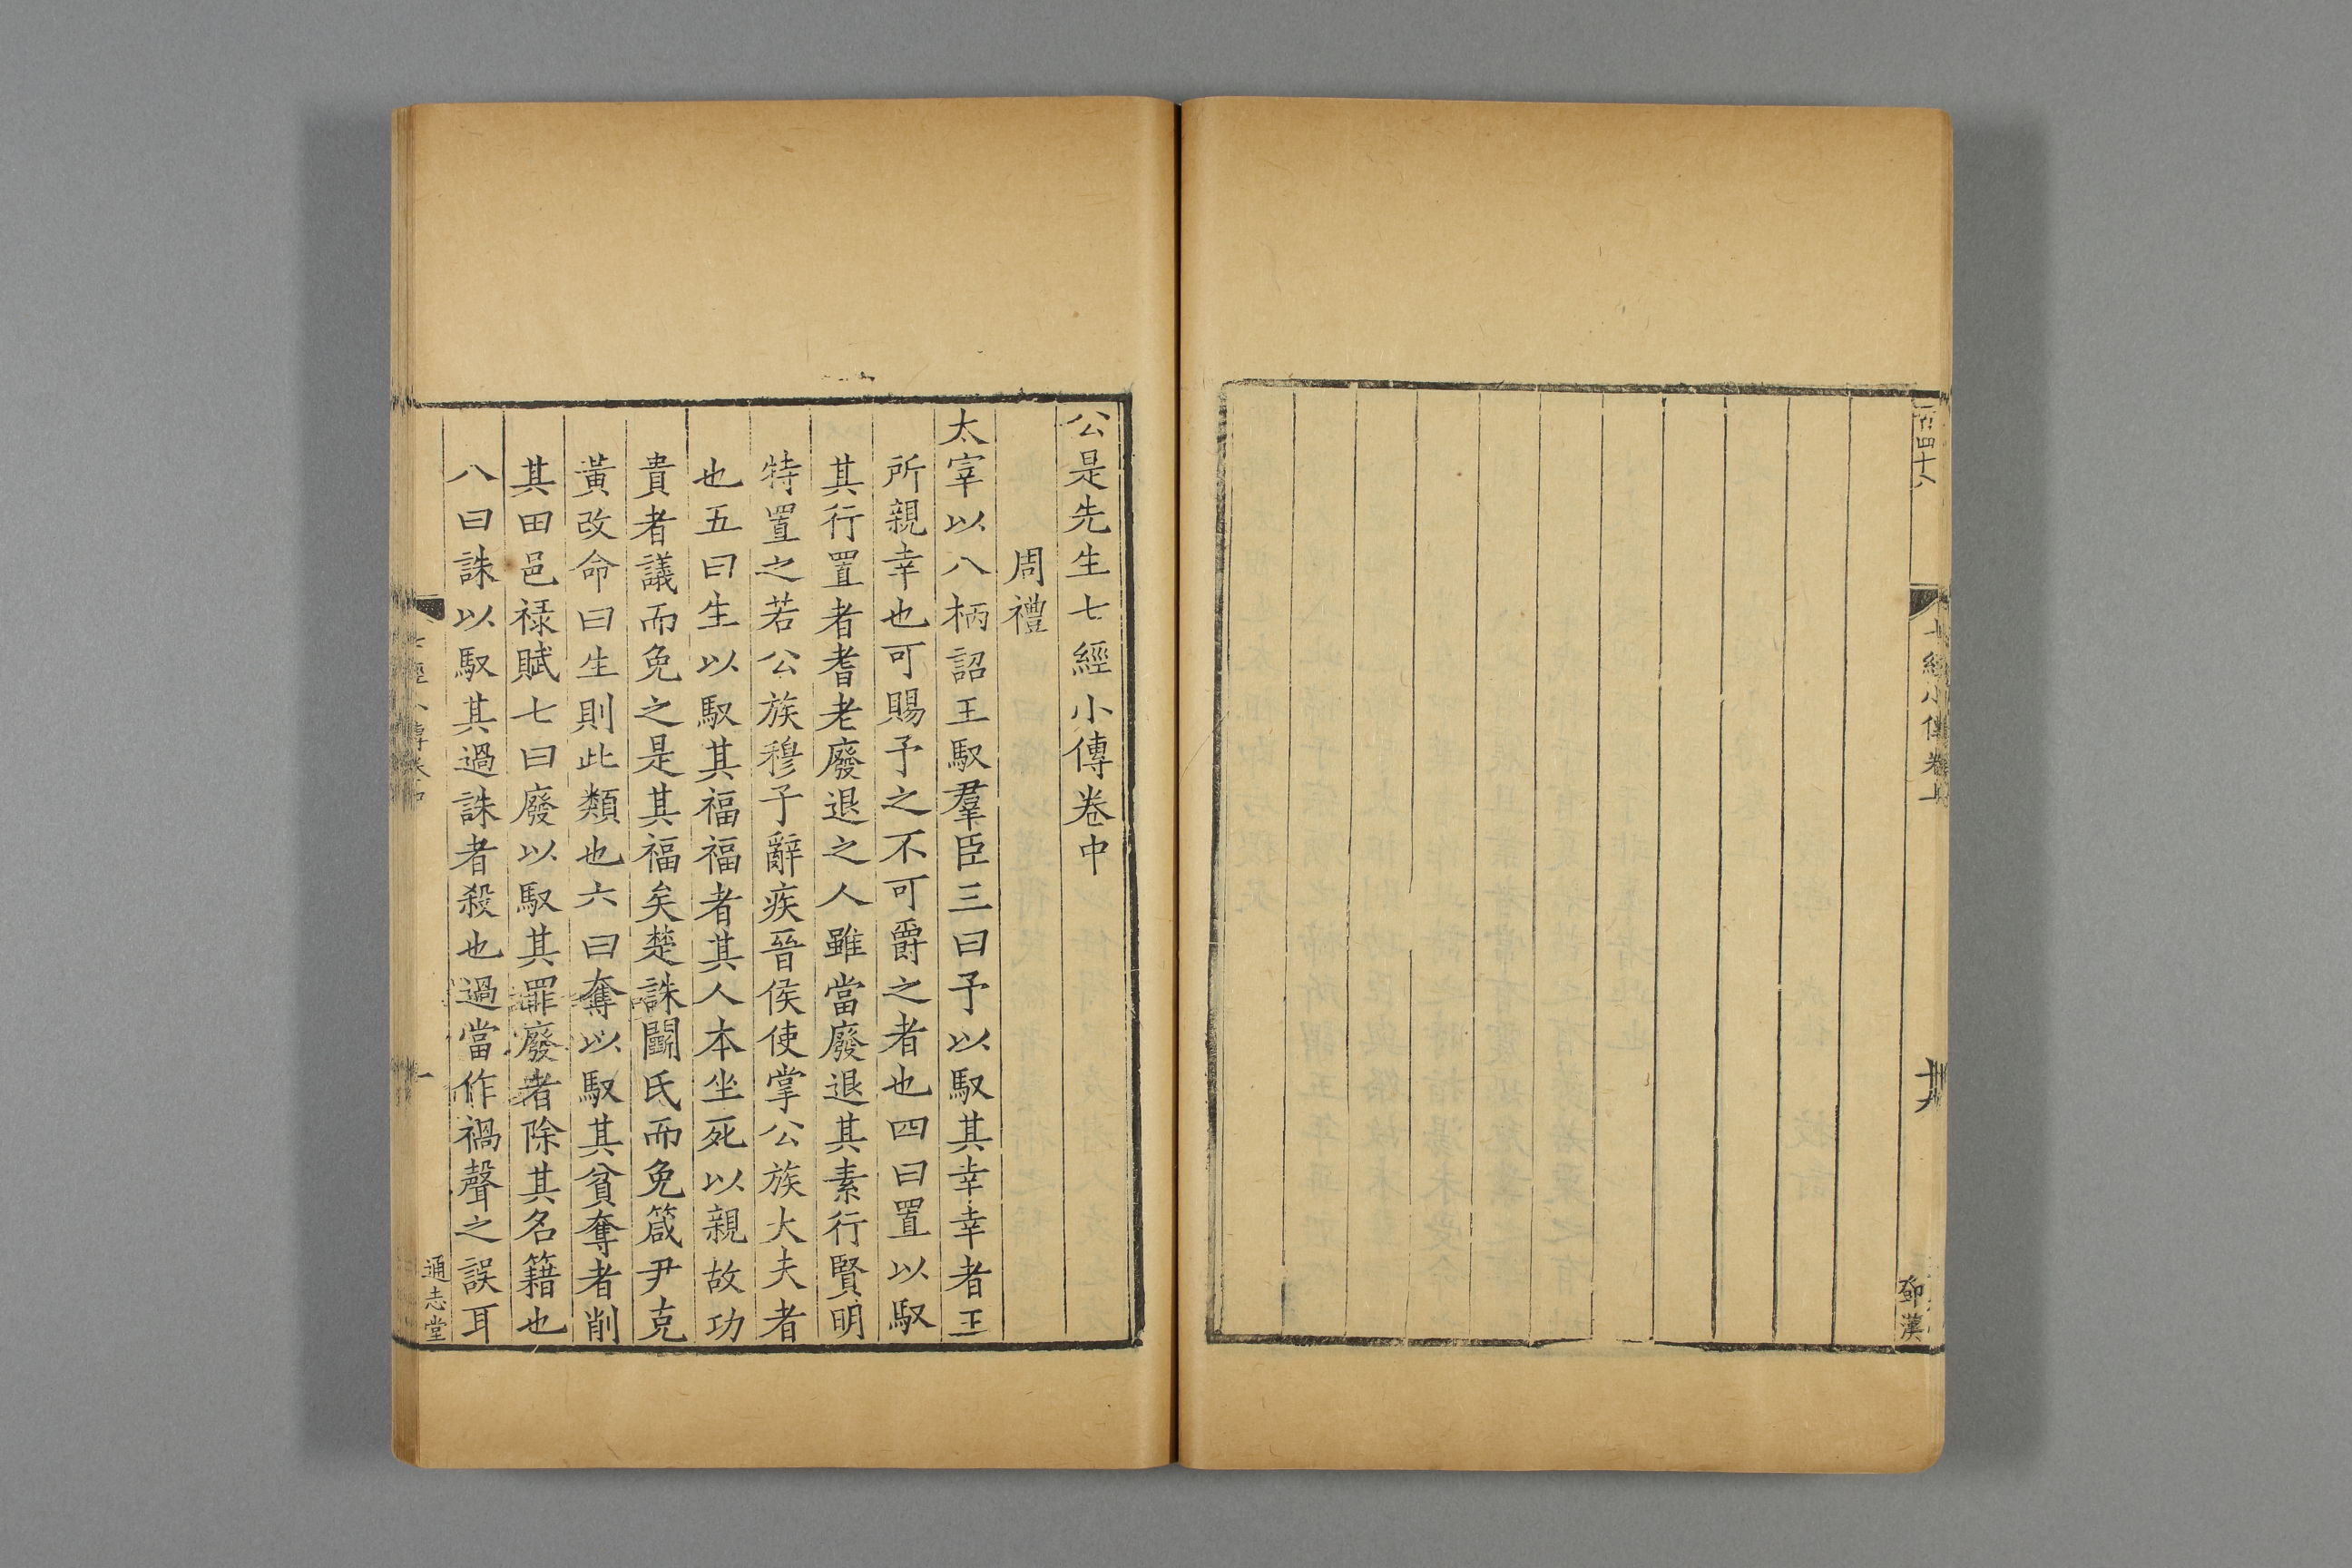 七經小傳卷上
鄧漢
公是先生七經小傳卷中
周禮
太宰以八柄詔王馭羣臣三曰予以馭其幸幸者王
所親幸也可賜予之不可爵之者也四曰置以馭
其行置者耆老廢退之人雖當廢退其素行賢明
特置之若公族穆子辭疾晉侯使掌公族大夫者
也五曰生以馭其福福者其人本坐死以親故功
貴者議而免之是其福矣楚誅鬭氏而免箴尹克
黃改命曰生則此類也六曰奪以馭其貧奪者削
其田邑祿賦七曰廢以馭其罪廢者除其名籍也
八曰誅以馭其過誅者殺也過當作禍聲之誤耳
一
通志堂